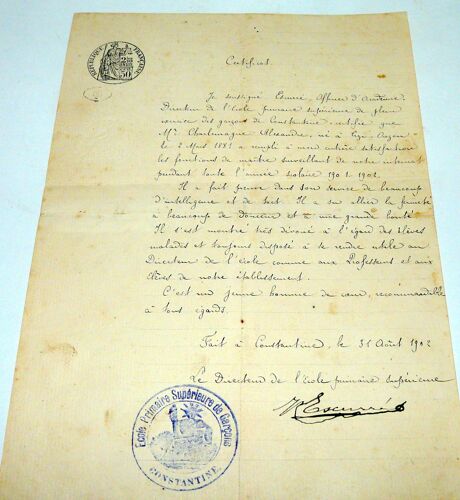 RÉPUBLIQUE FRANÇAISE
Certificat
Je soussigné Escurré, Officier d'Académie,
Directeur de l'école primaire supérieure de plein
exercice des garçons de Constantine certifie que
Mr. Charlemagne Alexandre, né à
le 2 Mars 1881 a rempli à mon entière satisfaction
les fonctions de maître surveillant de notre internat
pendant toute l'année scolaire 1901-1902.
Il a fait preuve dans son service de beaucoup
d'intelligence et de tact. Il a su allier la fermeté
à beaucoup de douceur et à une grande bonté.
Il s'est montré très dévoué à l'égard des élèves
malades et toujours disposé à se rendre utile au
Directeur de l'école comme aux Professeurs et aux
élèves de notre établissement.
C'est un jeune homme de cœur, recommandable
à tous égards.
Fait à Constantine, le 31 Août 1902
Le Directeur de l'école primaire supérieure
Escurré
Ecole Primaire Supérieure de Garçons
CONSTANTINE